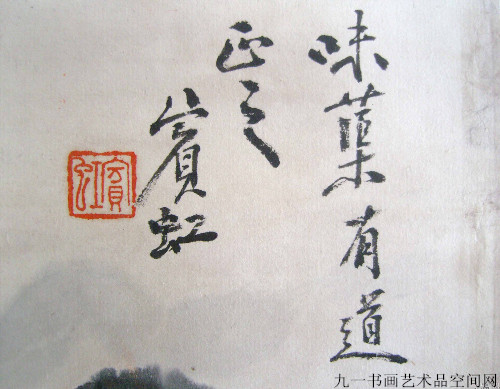 味菜有道
正之
宾虹
宾虹
九一书画艺术品空间网